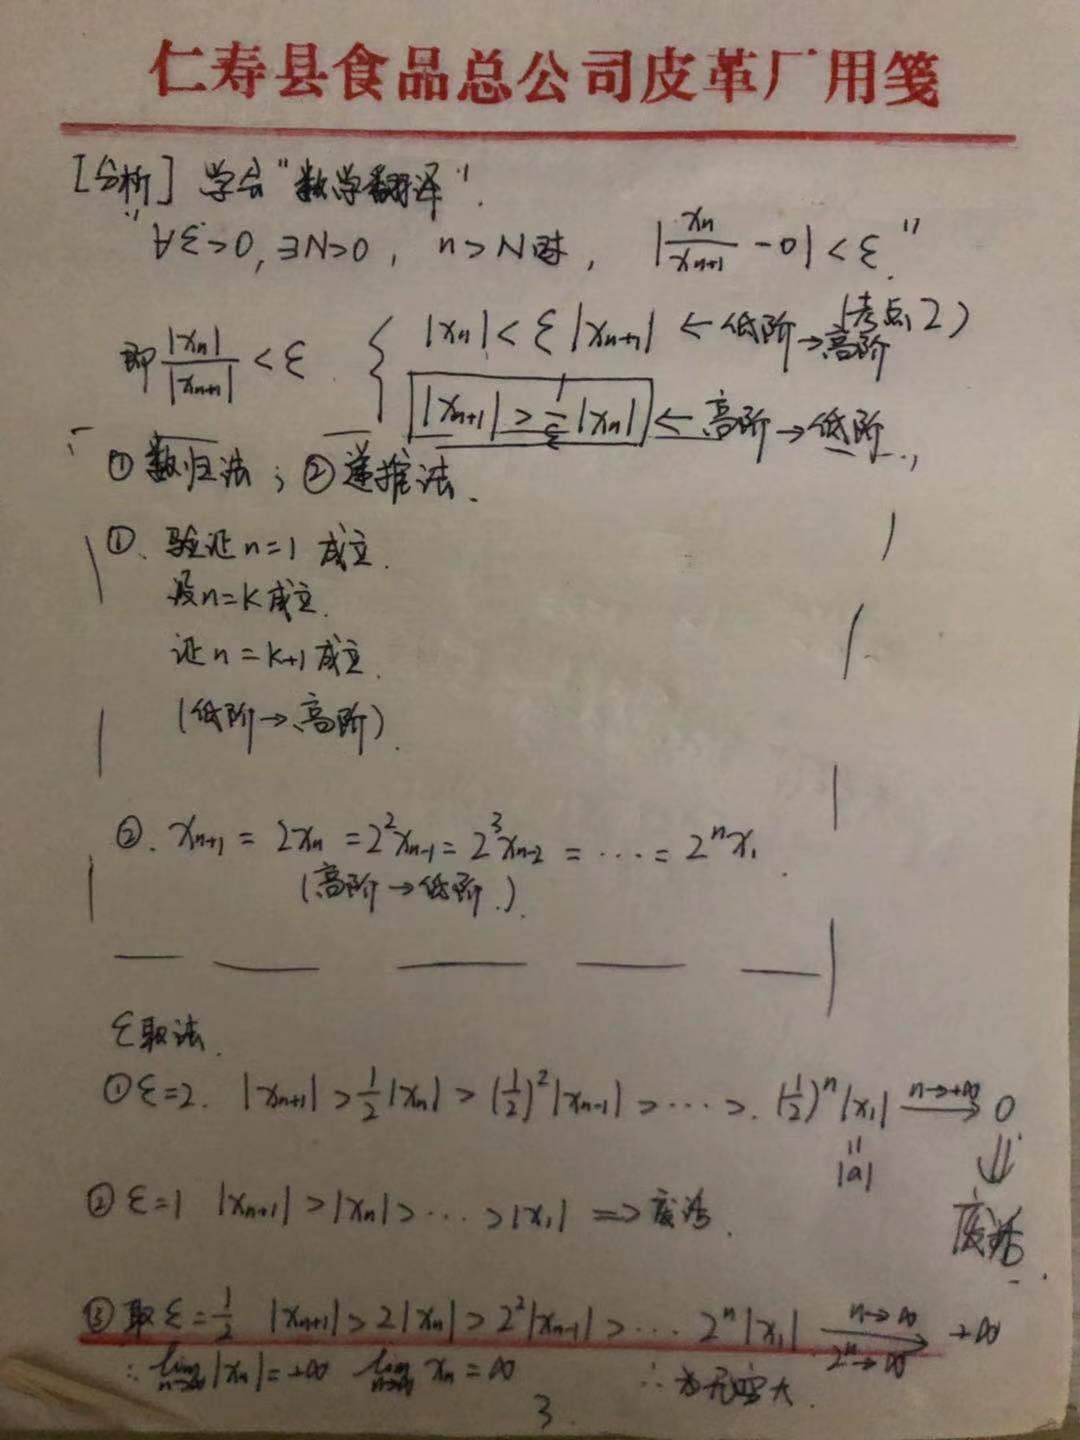 仁寿县食品总公司皮革厂用笺
[分析] 学会"数学翻译".
"∀ε>0, ∃N>0, n>N时, |xₙ/xₙ₊₁ - 0| < ε."
(考点2)
即 |xₙ|/|xₙ₊₁| < ε { |xₙ| < ε|xₙ₊₁| ← 低阶→高阶
|xₙ₊₁| > 1/ε |xₙ| ← 高阶→低阶.
① 数归法; ② 递推法.
①. 验证n=1 成立.
设n=k成立.
证n=k+1成立.
(低阶→高阶).
②. xₙ₊₁ = 2xₙ = 2²xₙ₋₁ = 2³xₙ₋₂ = ··· = 2ⁿx₁.
(高阶→低阶.).
ε取法.
①ε=2. |xₙ₊₁| > 1/2|xₙ| > (1/2)²|xₙ₋₁| > ··· > (1/2)ⁿ|x₁| n→+∞ → 0
|| ⇓
|a|
②ε=1 |xₙ₊₁| > |xₙ| > ··· > |x₁| ⇒ 废话.
废话.
③ 取ε=1/2 |xₙ₊₁| > 2|xₙ| > 2²|xₙ₋₁| > ··· 2ⁿ|x₁| n→∞ 2ⁿ→∞ → +∞
∴ lim n→∞ |xₙ| = +∞ lim n→∞ xₙ = ∞ ∴ 为无穷大.
3